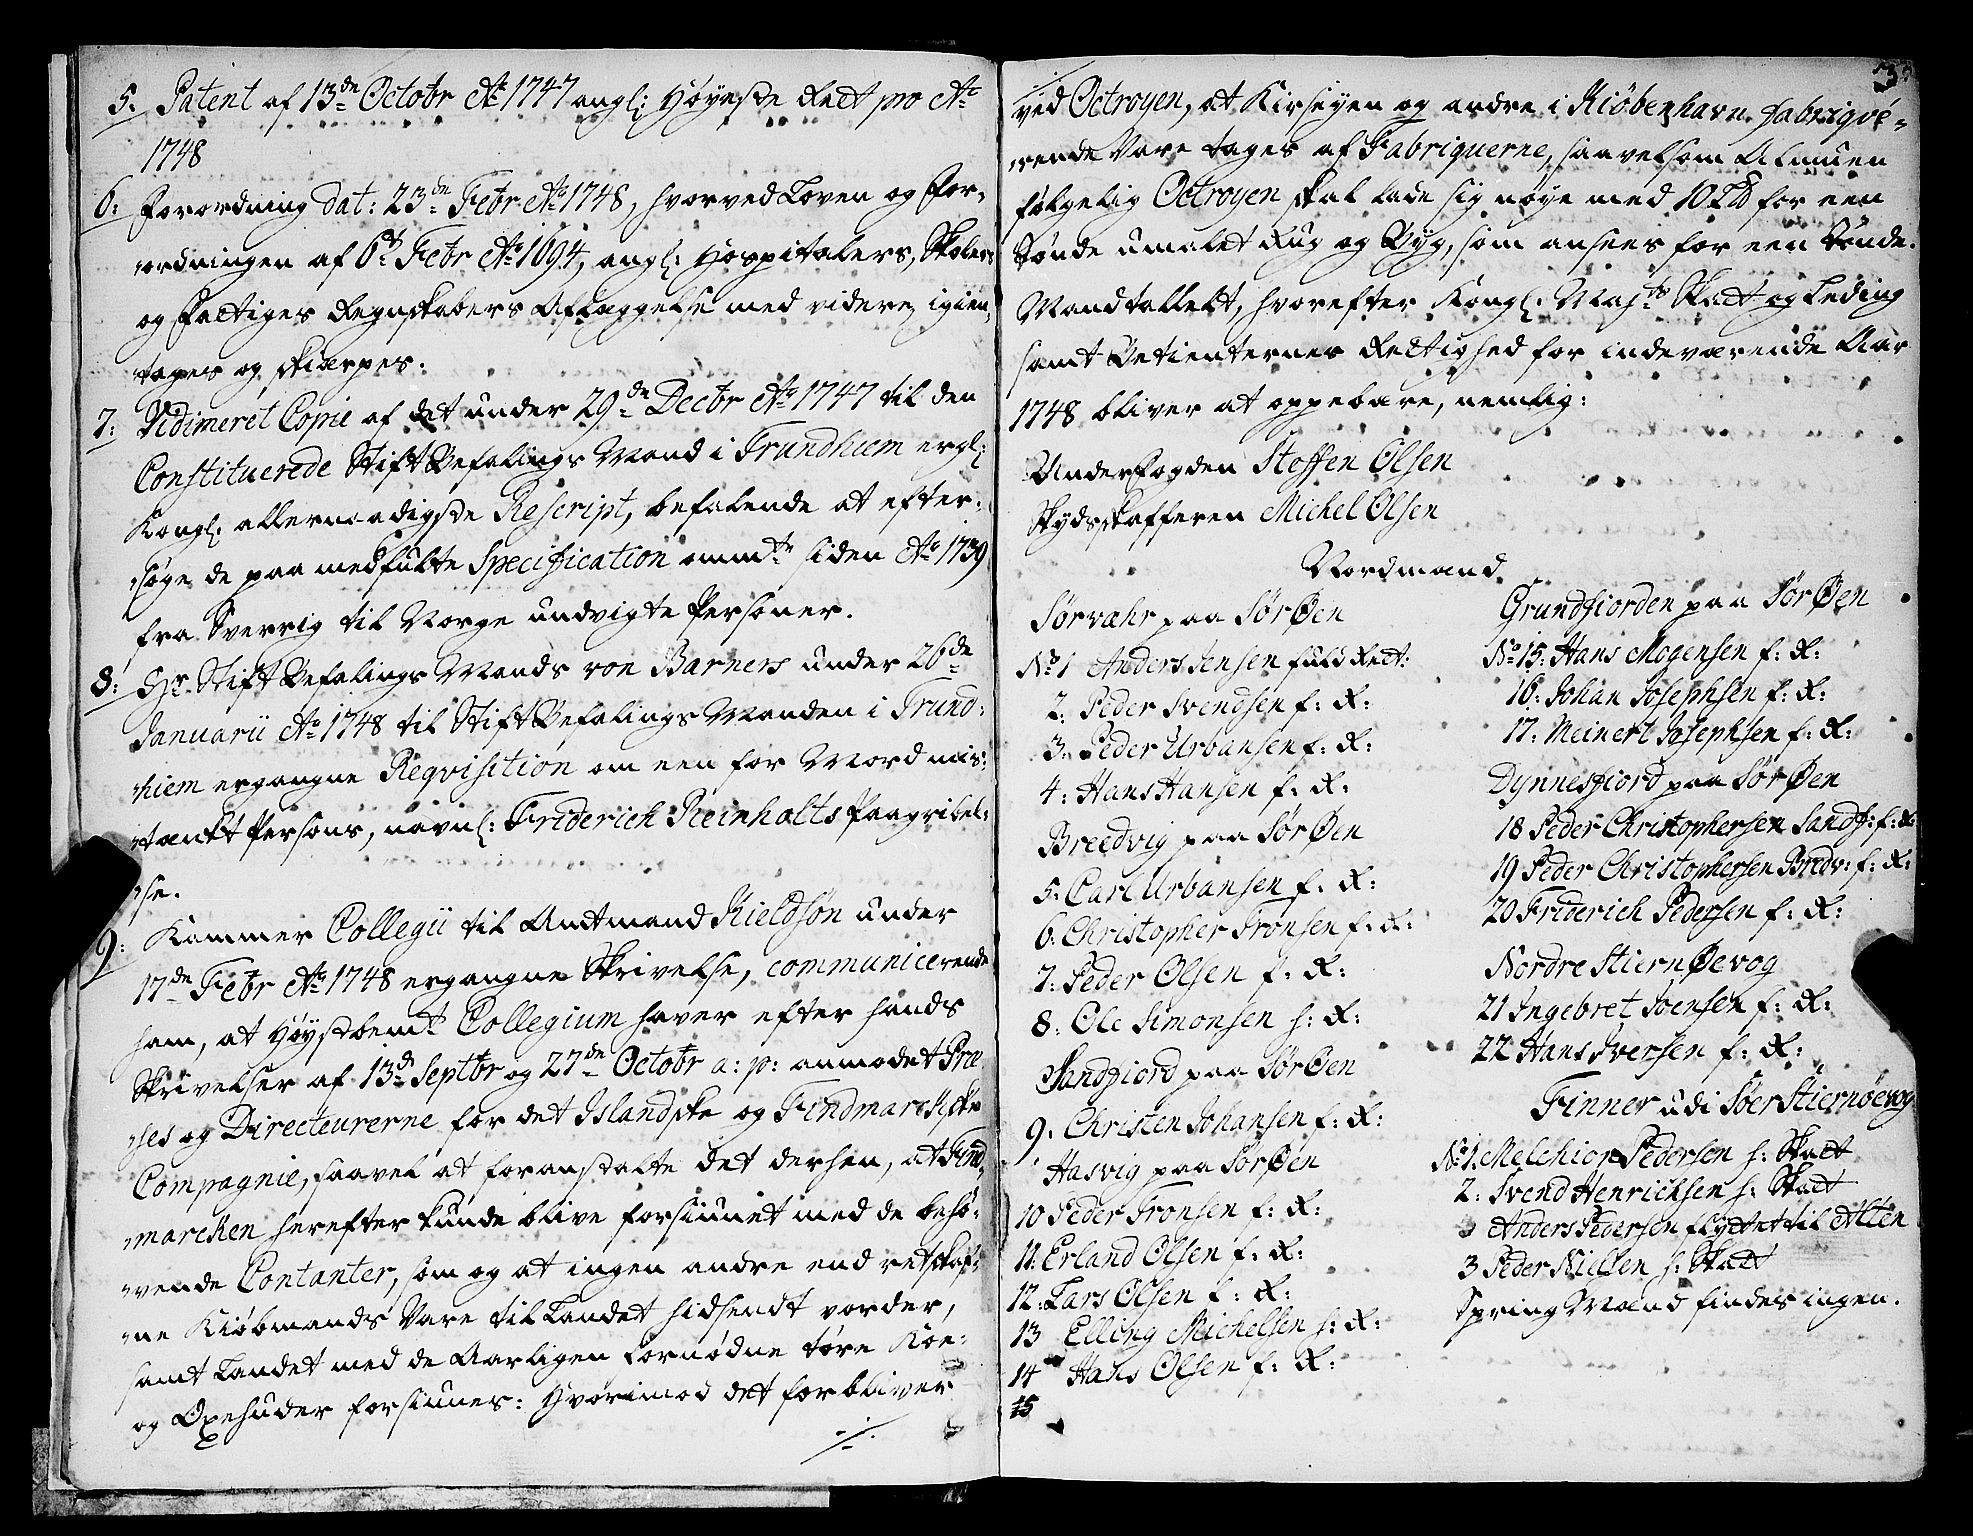 5. Patent af 13de Octobr Ao 1747 angl: Høyeste Rect pro Ao
1748
6: Forordning dat: 23de Febr Ao 1748, hvorved Loven og For-
ordningen af 6te Febr Ao 1694, angl: Hospitalers, Skolers
og Fattiges Regnskabers Aflæggelse med videre, igien-
tages og skiærpes.
7: Vidimeret Copie af det under 29de Decbr Ao 1747 til den
Constituerede Stift Befalings Mand i Trundhiem ergl:
Kongl: allernaadigste Rescript, befalende at efter-
søge de paa medfulte Specification ommte siden Ao 1739
fra Sverrig til Norge undvigte Personer.
8: Hr. Stift Befalings Mands von Barners under 26de
Januarii Ao 1748 til Stift Befalings Manden i Trund-
hiem ergangne Reqvisition om een for Mord mis-
tænkt Persons, navnl: Friderich Reinholts Paagribel-
se.
9: Kammer Collegii til Amtmand Kieldsøn under
17de Febr Ao 1748 ergangne Skrivelse, communicerende
ham, at Høystbemte Collegium haver efter hands
Skrivelser af 13de Septbr og 27de Octobr a: p: anmodet Præ-
ses og Directeurerne for det Islandske og Findmarckiske
Compagnie, saavel at foranstalte det derhen, at Find-
marchen herefter kunde blive forsiunet med de behø-
vende Contanter, som og at ingen andre end retskaf-
ne Kiøbmands Vare til Landet hidsendt vorder,
samt Landet med de Aarligen fornødne tøre Koe-
og Oxehuder forsiunes: Hvorimod det forbliver
3.
ved Octroyen, at Kirseyen og andre i Kiøbenhavn Fabriqve-
rende Vare tages af Fabriquerne, saavelsom Almuen
følgelig Octroyen skal lade sig nøye med 10 for een
Tønde umalet Rug og Byg, som ansees for een Tønde.
Mandtallet, hvorefter Kongl: Majts Skatt og Leding
samt Betienternes Rettighed for indeværende Aar
1748 bliver at oppebære, nemlig:
Underfogden Stoffen Olsen
Skydsskafferen Michel Olsen
Nordmænd.
Sørvæhr paa SørØen
No 1 Anders Jensen fuld Rect:
2. Peder Svendsen f: R:
3. Peder Urbansen f: R:
4: Hans Hansen f: R:
Breedvig paa SørØen
5: Carl Urbansen f: R:
6. Christopher Tronsen f: R:
7: Peder Olsen f: R:
8: Ole Simonsen h: R:
Sandfiord paa SørØen
9. Christen Johansen f: R:
Hasvig paa SørØen
10 Peder Tronsen f: R:
11: Erland Olsen f: R:
12: Lars Olsen f: R:
13 Elling Michelsen h: R:
14 Hans Olsen f: R:
15
Grundfiorden paa SørØen
No 15: Hans Mogensen f: R:
16: Johan Josephsen f: R:
17: Meinert Josephsen f: R:
Dynnesfiord paa SørØen
18 Peder Christophersen Sandf: f: R:
19 Peder Christophersen Bredv: f: R:
20 Friderich Pedersen f: R:
Nordre StiernØevog
21 Ingebret Joensen f: R:
22 Hans Iversen f: R:
Finner udi Søer Stiernøevog
No 1. Melchior Pedersen h: Skatt
2: Svend Henrichsen h: Skatt
Anders Pedersen flyttet til Alten
3 Peder Nielsen h: Skatt
Spring Mænd findes ingen.